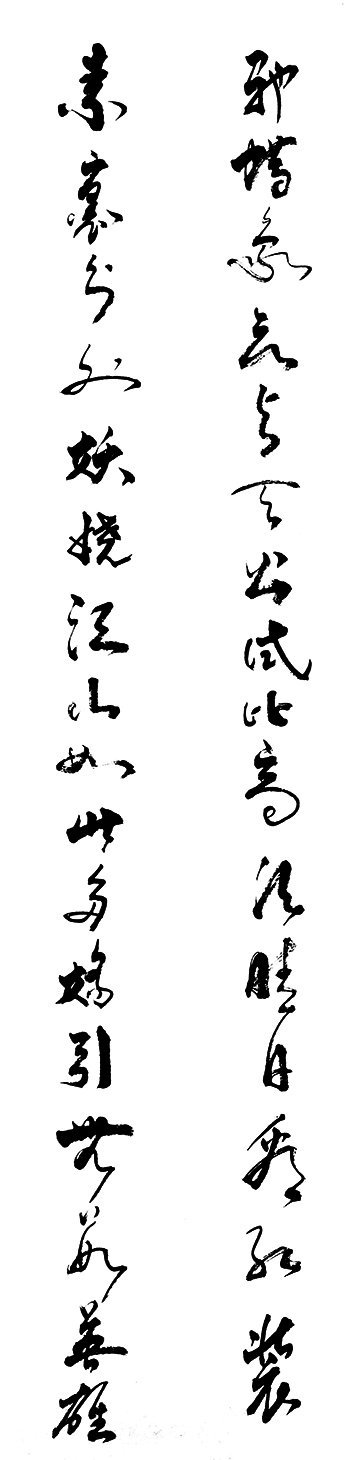 驰蜡象欲与天公试比高须晴日看红装
素裹分外妖娆江山如此多娇引无数英雄